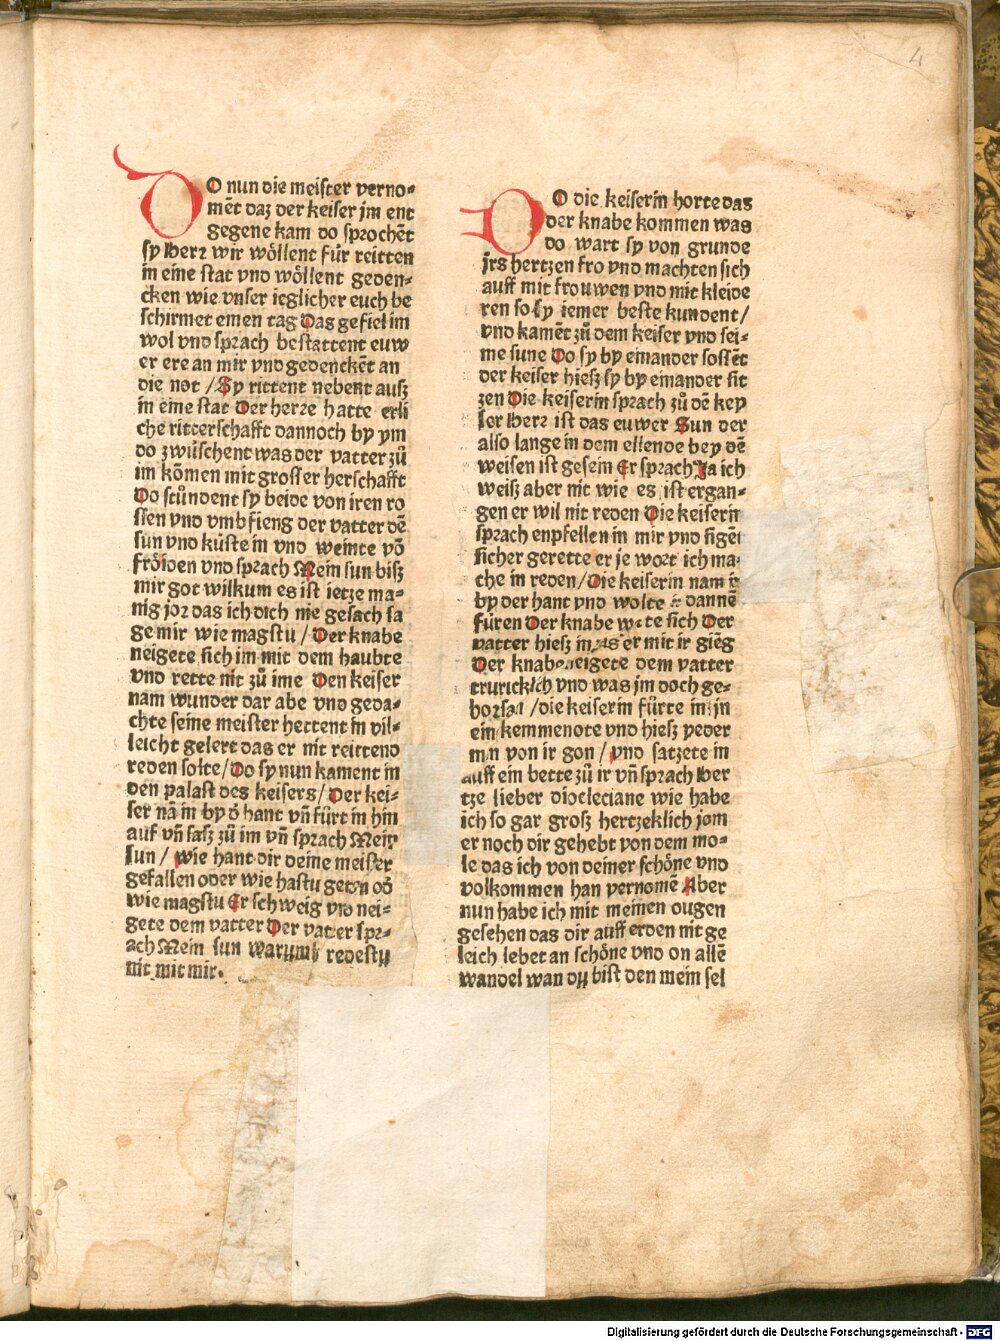 4
DO nun die meister verno⸗
mēt daz der keiser im ent
gegene kam do sprochēt
sy Herr wir wöllent für reitten
in eine stat vnd wöllent geden⸗
cken wie vnser ieglicher euch be
schirmet einen tag Das gefiel im
wol vnd sprach bestattent euw
er ere an mir vnd gedenckēt an
die not / Sy rittent nebent ausz
in eine stat Der herre hatte erli
che ritterschafft dannoch by ym
do zwüschent was der vatter zů
im kōmen mit grosser herschafft
Do stůndent sy beide von iren ro
ssen vnd vmbfieng der vatter dē
sun vnd küste in vnd weinte vō
fröiden vnd sprach Mein sun bisz
mir got wilkum es ist ietze ma⸗
nig jor das ich dich nie gesach sa
ge mir wie magstu / Der knabe
neigete sich im mit dem haubte
vnd rette nit zů ime Den keiser
nam wunder dar abe vnd geda⸗
chte seine meister hettent in vil⸗
leicht gelert das er nit reittend
reden solte / Do sy nun kament in
den palast des keisers / Der kei⸗
ser nā in by d̄ hant vn̄ fürt in hin
auf vn̄ sasz zů im vn̄ sprach Mein
sun / wie hant dir deine meister
gefallen oder wie hastu geton od̄
wie magstu Er schweig vnd nei⸗
gete dem vatter Der vatter spr⸗
ach Mein sun warumb redestu
nit mit mir.
DO die keiserin horte das
der knabe kommen was
do wart sy von grunde
jrs hertzen fro vnd machten sich
auff mit frouwen vnd mit kleide
ren so sy iemer beste kundent /
vnd kamēt zů dem keiser vnd sei⸗
me sune Do sy by einander sossēt
der keiser hiesz sy by einander sit
zen Die keiserin sprach zů dē key
ser Herr ist das euwer Sun der
also lange in dem ellende bey dē
weisen ist gesein Er sprach Ja ich
weisz aber nit wie es ist ergan⸗
gen er wil nit reden Die keiserin
sprach enpfellen in mir vnd sigēt
sicher gerette er je wort ich ma⸗
che in reden / Die keiserin nam in
by der hant vnd wolte in dannē
füren Der knabe werte sich Der
vatter hiesz in das er mit ir giēg
Der knabe neigete dem vatter
truricklich vnd was jm doch ge⸗
horsam / die keiserin fürte in in
ein kemmenote vnd hiesz yeder
man von ir gon / vnd satzete in
auff ein bette zů ir vn̄ sprach Her
tze lieber diocleciane wie habe
ich so gar grosz hertzeklich jom
er noch dir gehebt von dem mo⸗
le das ich von deiner schöne vnd
volkommen han vernomē Aber
nun habe ich mit meinen ougen
gesehen das dir auff erden nit ge
leich lebet an schöne vnd on allē
wandel wan du bist den mein sel
Digitalisierung gefördert durch die Deutsche Forschungsgemeinschaft - DFG